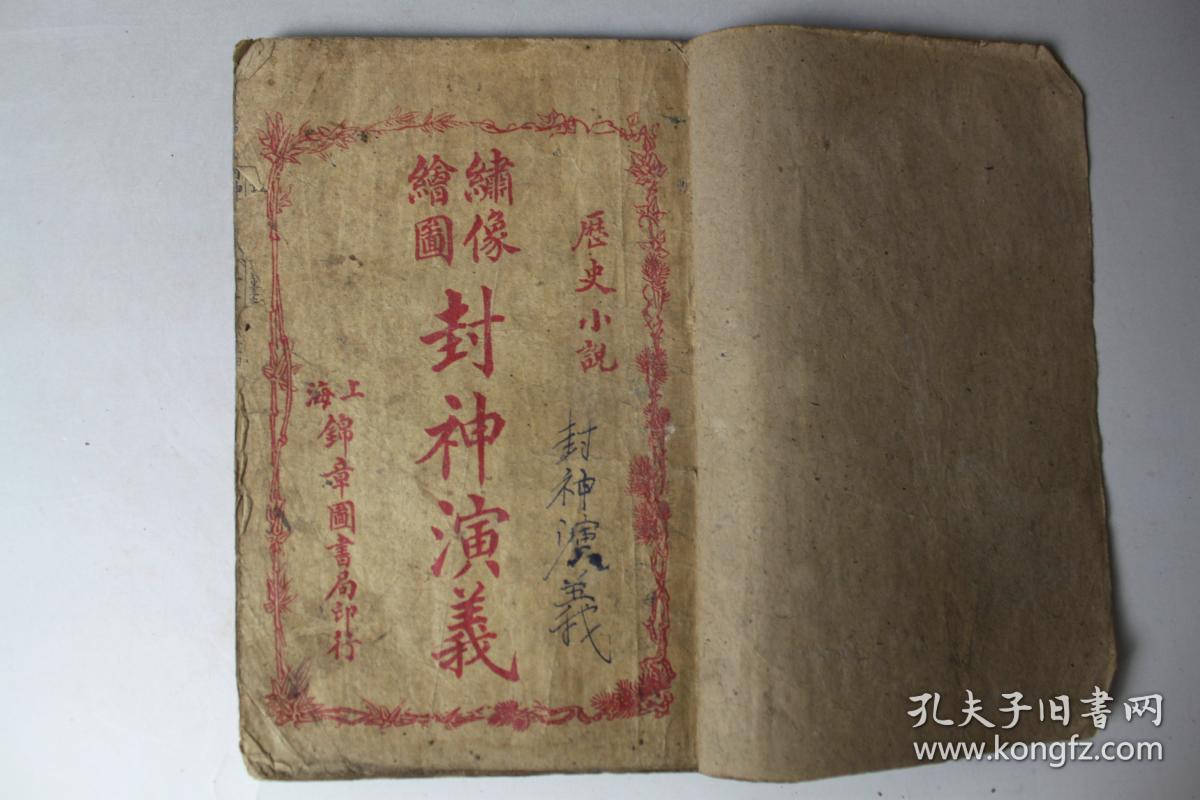 歷史小說
繡像
繪圖
封神演義
上海
錦章圖書局印行
封神演義
孔夫子旧書网
www.kongfz.com